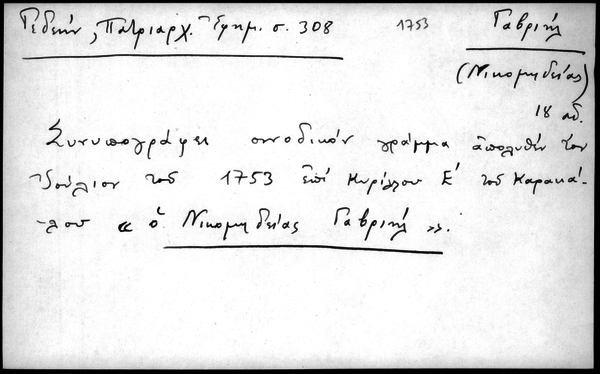 Γεδεών, Πατριαρχ. Ἐφημ. σ. 308 1753 Γαβριήλ
(Νικομηδείας)
18 αἰ.
Συνυπογράφει συνοδικόν γράμμα ἀπολυθέν τον
Ἰούλιον τοῦ 1753 ἐπί Κυρίλλου Ε' τοῦ Καρακά-
λου « ὁ Νικομηδείας Γαβριήλ ».